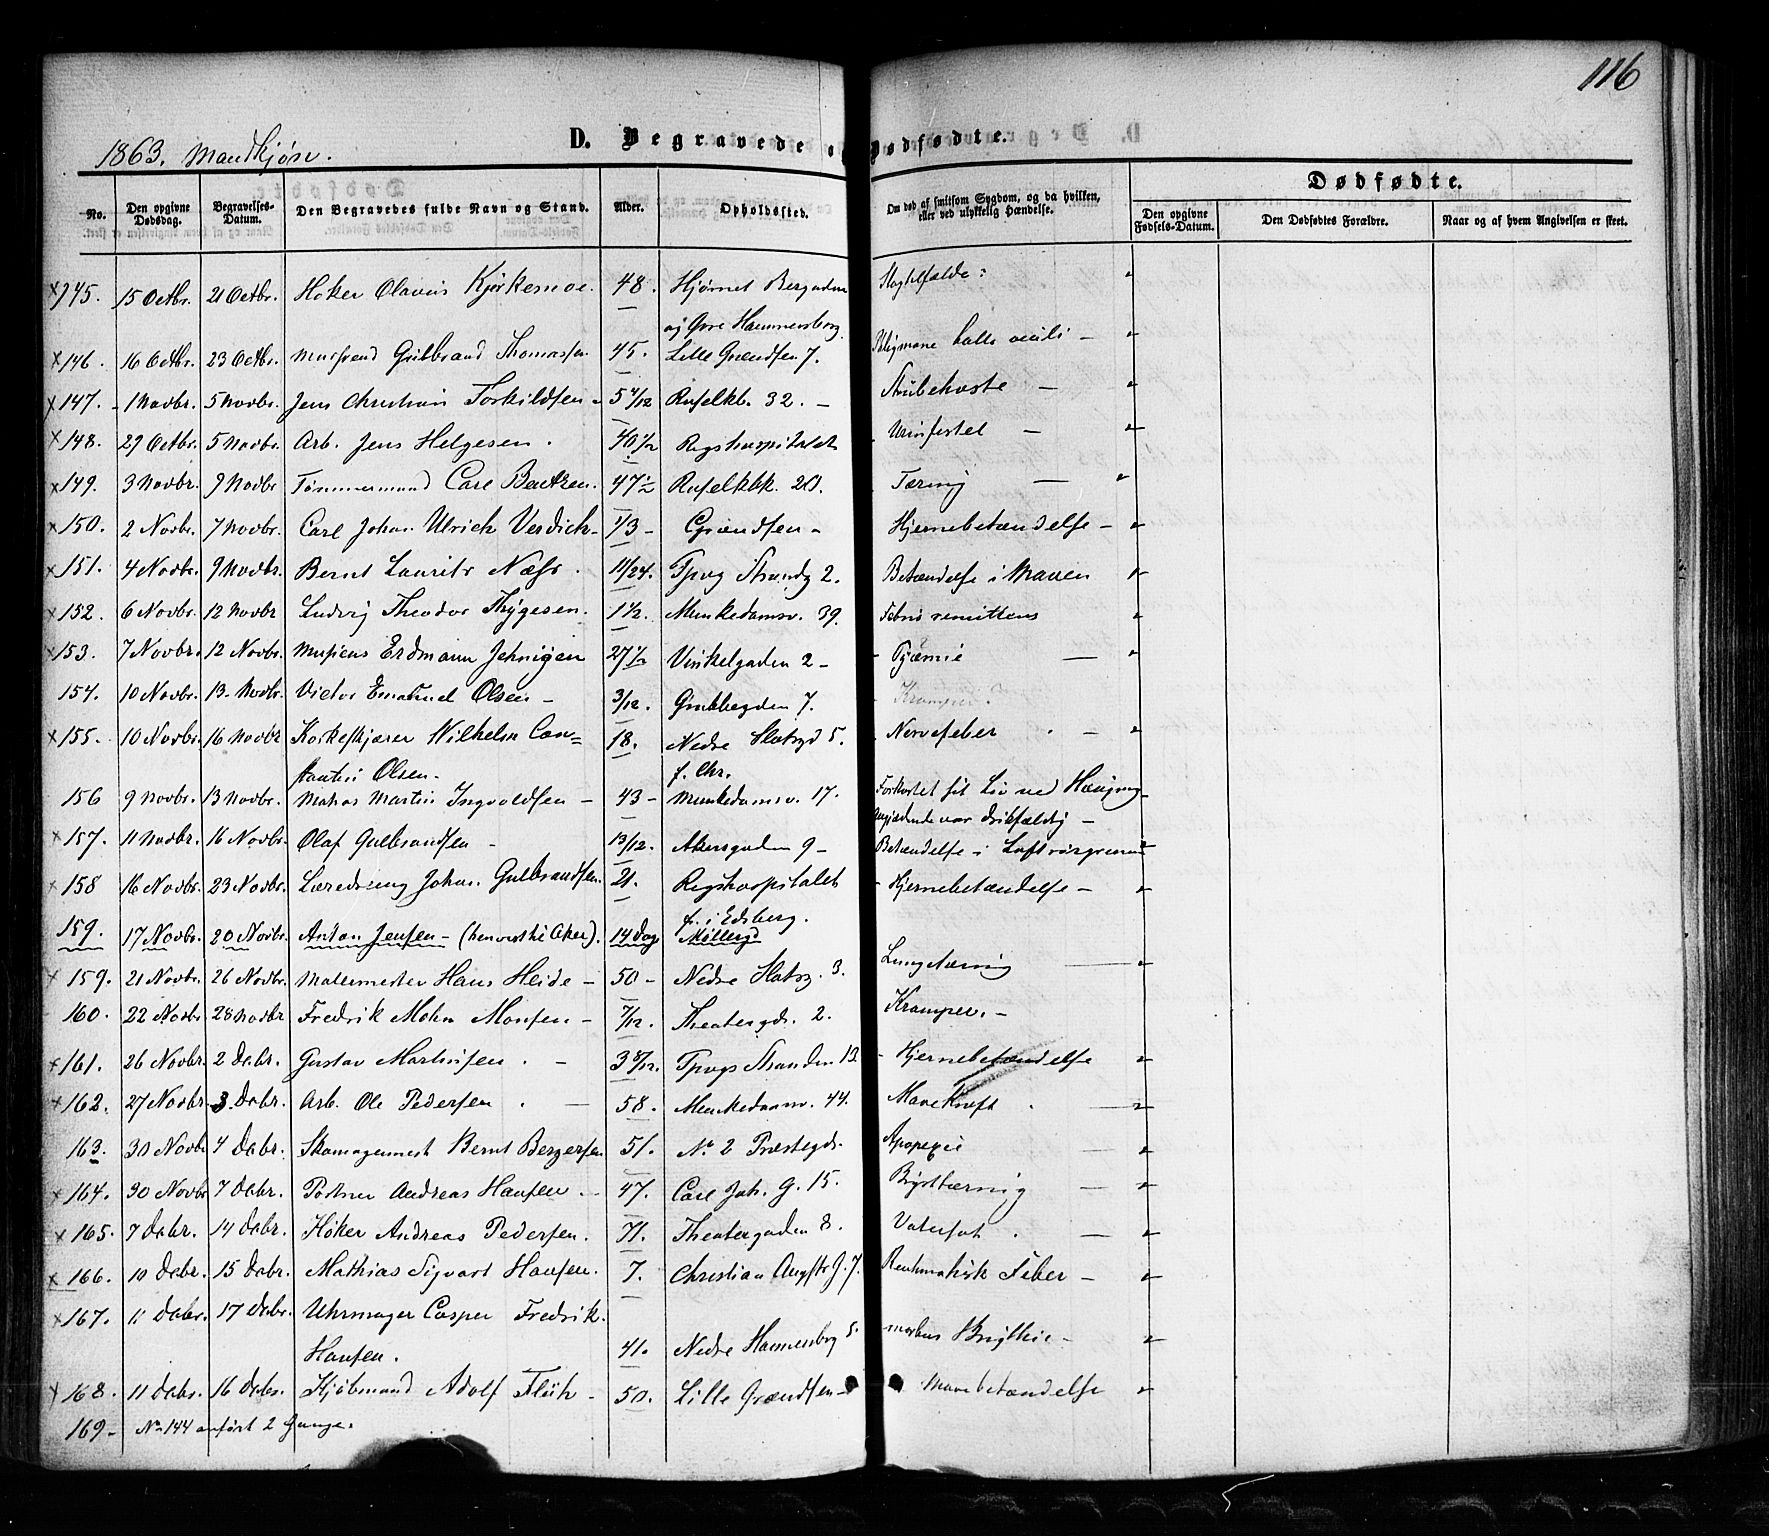 116
1863. Mandkjøn.
D. Begravede og Dødfødte.
No.
Den opgivne Dødsdag.
Begravelses-Datum.
Den Begravedes fulde Navn og Stand.
Alder.
Opholdssted.
Om død af smitsom Sygdom, og da hvilken, eller ved ulykkelig Hændelse.
Dødfødte.
Den opgivne Fødsels-Datum.
Den Dødfødtes Forældre.
Naar og af hvem Angivelsen er skeet.
145. 15 Octbr. 21 Octbr. Høker Olavus Kjerkemoe. 48. Hjørnet Bergaden
og Øvre Hammersborg.
146. 16 Octbr. 23 Octbr. Gulbrand Thomassen 45. Lille Grændsen 7.
147. 1 Novbr. 5 Novbr. Jens Christian Torkildsen 5 4/12 Ruselkb. 32. Strubehoste
148. 29 Octbr. 5 Novbr. Arb. Jens Helgesen. 40 1/2 Rigshospitalet Urinfistel
149. 3 Novbr. 9 Novbr Tømmermand Carl Bentzen. 47 1/2 Ruselkbk. 20. Tæring
150. 2 Novbr. 7 Novbr. Carl Johan Ulrich Verdich 1/3 Grændsen Hjernebetændelse
151. 4 Novbr. 9 Novbr. Bernt Laurits Næss. 11/24. Tjuvg Strandg 2. Betændelse i Maven
152. 6 Novbr. 12 Novbr Ludvig Theodor Thygesen. 1 1/2. Munkedamsv. 39. Febris remittens
153. 7 Novbr. 12 Novbr. Musicus Erdmann Jehnigen 27 1/2 Vinkelgaden 2 Pyæmie
154. 10 Novbr. 13. Novbr. Victor Emanuel Olsen 3/12. Grubbegden 7. Kramper.
155. 10 Novbr. 16 Novbr Korkeskjærer Wilhelm Con= 18. Nedre Slotsgd 5. Nervefeber
stantin Olsen. f. Chr.
156 9 Novbr. 13 Novbr. Martin Ingvoldsen 43 Munkedamsv. 17. Forkortet sit Liv ved Hængning
Angjældende var drikfældig
157. 11 Novbr. 16 Novbr. Olaf Gulbrandsen 13/12. Akersgaden 9 Betændelse i Luftrørgrenene
158 16 Novbr. 23 Novbr. Læredreng Johan Gulbrandsen. 21. Rigshospitalet Hjernebetændelse
f. i Edsberg.
159. 17 Novbr. 20 Novbr. Anton Jensen (henvist til Aker). 14 Dag Møllergd
159. 21 Novbr. 26 Novbr. Malermester Hans Heide 50 Nedre Slotsg. 3. Lungetæring
160. 22 Novbr 28 Novbr Fredrik Mohn Monsen 7/12. Theatergd. 2. Kramper.
161. 26 Novbr. 2 Debr. Gustav Martinsen. 3 8/12. Tjuvgs Stranden 13. Hjernebetændelse
162. 27 Novbr. 3 Debr. Arb. Ole Pedersen. 58. Munkedamsv. 44. Mavekræft.
163. 30 Novbr 4 Debr. Skomagermest Bernt Bergersen 51. No 2 Præstegd. Apopexie
164. 30 Novbr 7 Debr. Portner Andreas Hansen. 47. Carl Joh. G. 15. Brysttæring
165. 7 Debr. 14 Debr. Høker Andreas Pedersen. 71. Theatergaden 8. Vatersot.
166. 10 Debr. 15 Debr. Mathias Sigvart Hansen. 7. Christian Augsts G. 7. Reuhmatisk Feber
167. 11 Debr. 17 Debr. Uhrmager Casper Fredrik
Hansen. 41. Nedre Hammersbrg 5. morbus Brigthie
168. 11 Debr. 16 Debr. Kjøbmand Adolf 50. Lille Grændsen Mavebetændelse
169 No 144 anført 2 Gange.